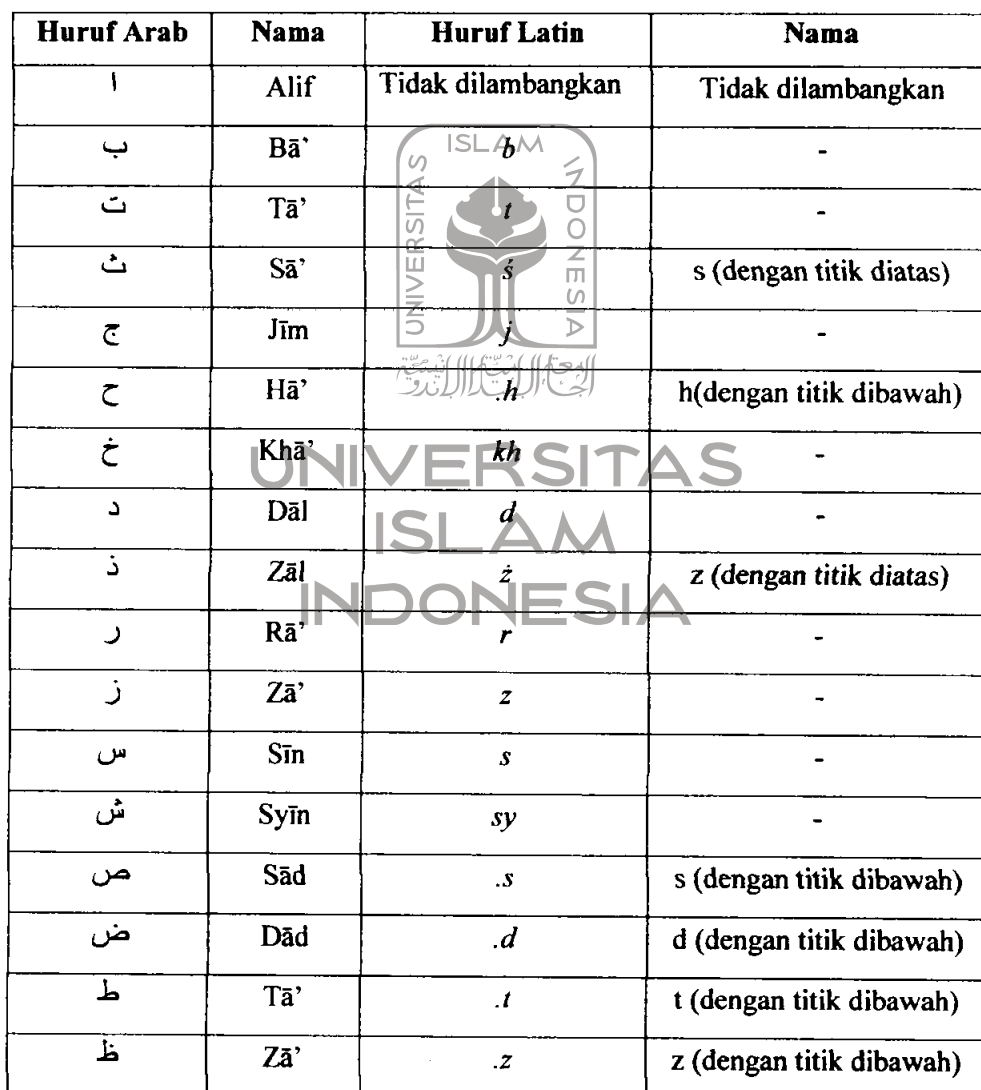 Huruf Arab Nama Huruf Latin Nama
ا Alif Tidak dilambangkan Tidak dilambangkan
ب Bā' b -
ت Tā' t -
ث Sā' ś s (dengan titik diatas)
ج Jīm j -
ح Hā' .h h(dengan titik dibawah)
خ Khā' kh -
د Dāl d -
ذ Zāl ż z (dengan titik diatas)
ر Rā' r -
ز Zā' z -
س Sīn s -
ش Syīn sy -
ص Sād .s s (dengan titik dibawah)
ض Dād .d d (dengan titik dibawah)
ط Tā' .t t (dengan titik dibawah)
ظ Zā' .z z (dengan titik dibawah)
UNIVERSITAS
ISLAM
INDONESIA
UNIVERSITAS
ISLAM
INDONESIA